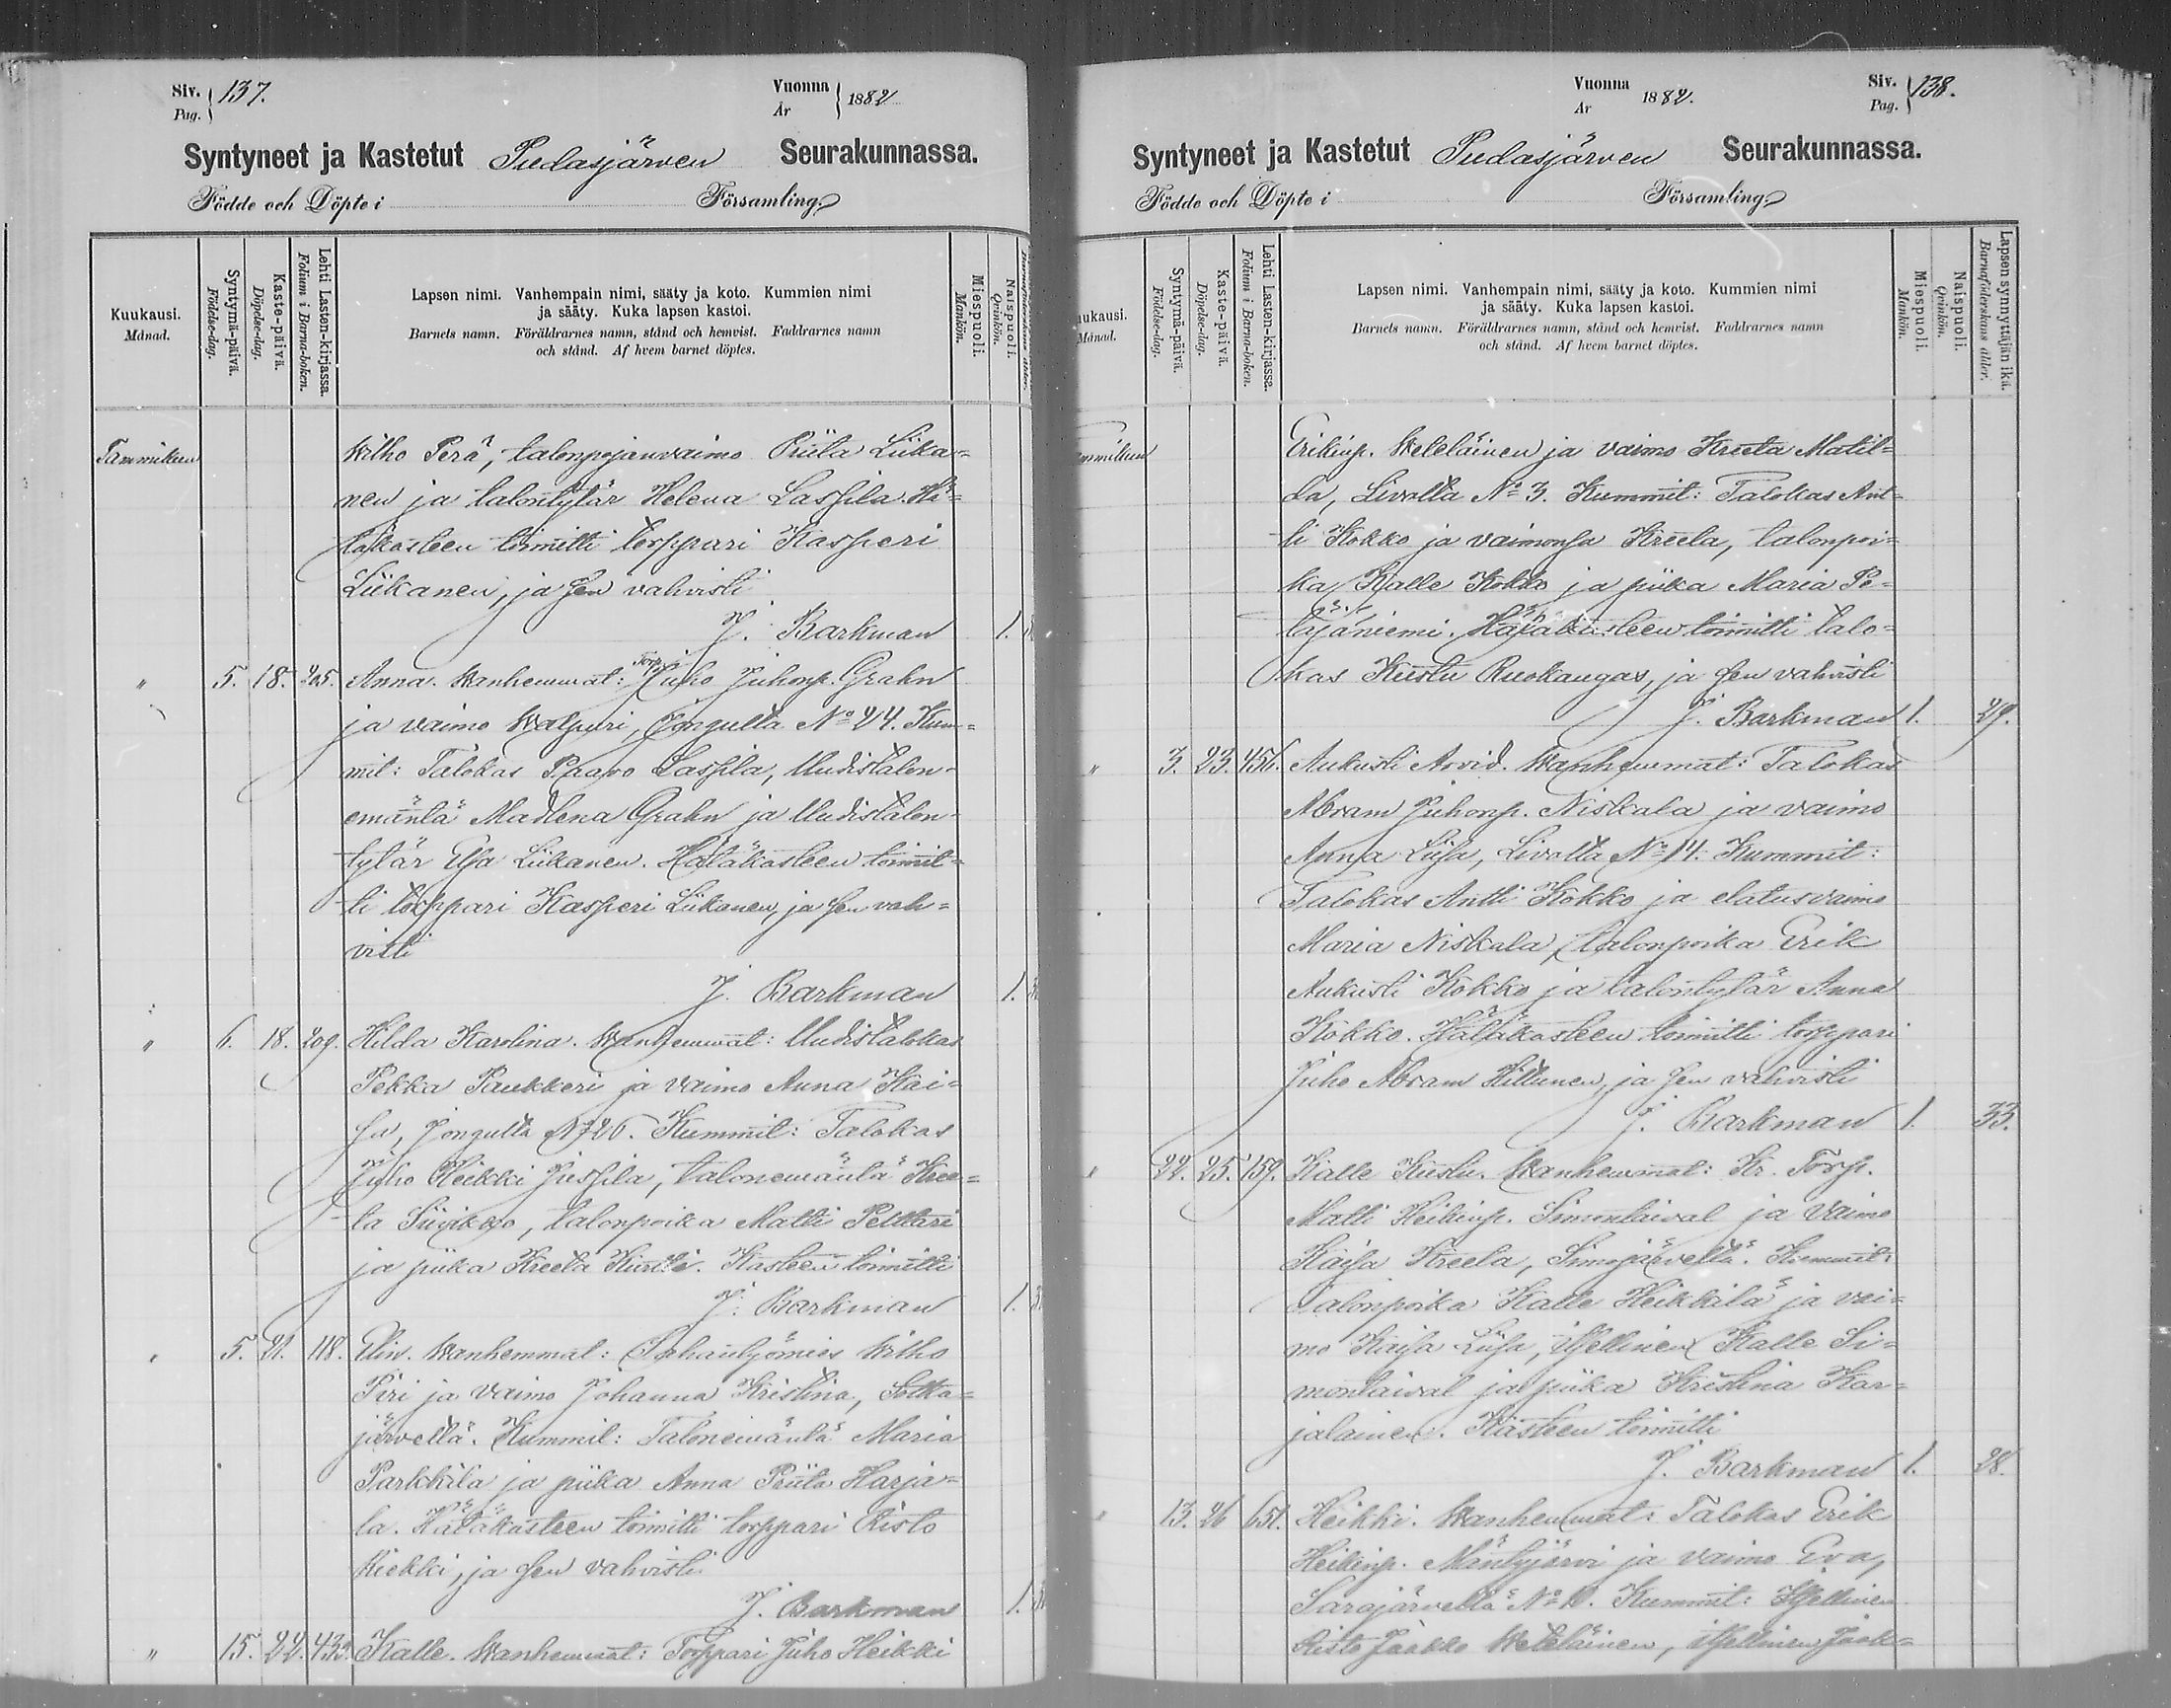 Siv. 137.
Pag.
Vuonna 1882
År
Syntyneet ja Kastetut Pudasjärven Seurakunnassa.
Födde och Döpte i Församling.
Kuukausi.
Månad.
Syntymä-päivä.
Födelse-dag.
Kaste-päivä.
Döpelse-dag.
Lehti Lasten-kirjassa.
Folium i Barna-boken.
Lapsen nimi. Vanhempain nimi, sääty ja koto. Kummien nimi
ja sääty. Kuka lapsen kastoi.
Barnets namn. Föräldrarnes namn, stånd och hemvist. Faddrarnes namn
och stånd. Af hvem barnet döptes.
Miespuoli.
Mankön.
Naispuoli.
Qvinkön.
Tammikuu Wilho Perä, talonpojanvaimo Priita Liika-
nen ja talontytär Helena Laspila. Hä-
täkasteen toimitti torppari Kasperi
Liikanen, ja sen vahvisti
J. Barkman 1.
" 5. 18. 205. Anna. Wanhemmat: Torp. Juho Juhonp. Grahn
ja vaimo Walpuri, Jongulta No 24. Kum-
mit: Talokas Paavo Laspila, Uudistalon-
emäntä Madlena Grahn ja Uudistalon-
tytär Liikanen. Hätäkasteen toimit-
ti torppari Kasperi Liikanen, ja sen vah-
visti
J. Barkman 1.
" 6. 18. 209. Hilda Karolina. Wanhemmat: Uudistalokas
Pekka Paukkeri ja vaimo Anna Kai-
sa, Jongulta No 26. Kummit: Talokas
Juho Heikki Juspila, talonemäntä Kree-
ta Siivikko, talonpoika Matti Petteri
ja piika Kreeta. Kasteen toimitti
J. Barkman 1.
" 5. 21. 118. Elin. Wanhemmat: Sahantyömies Wilho
Piri ja vaimo Johanna Kristina, Sotka-
järveltä. Kummit: Talonemäntä Maria
Parkkila ja piika Anna Priita Harja-
la. Hätäkasteen toimitti torppari Risto
Kiekki, ja sen vahvisti
J. Barkman 1.
" 15. 22. 433. Kalle. Wanhemmat: Torppari Juho Heikki
Vuonna 1882.
År
Siv. 138.
Pag.
Syntyneet ja Kastetut Pudasjärven Seurakunnassa.
Födde och Döpte i Församling
ukausi.
Månad.
Syntymä-päivä.
Födelse-dag.
Kaste-päivä.
Döpelse-dag.
Lehti Lasten-kirjassa.
Folium i Barna-boken.
Lapsen nimi. Vanhempain nimi, sääty ja koto. Kummien nimi
ja sääty. Kuka lapsen kastoi.
Barnets namn. Föräldrarnes namn, stånd och hemvist. Faddrarnes namn
och stånd. Af hvem barnet döptes.
Miespuoli.
Mankön.
Naispuoli.
Qvinkön.
Lapsen synnyttäjän ikä.
Barnaföderskans ålder.
mmikuu Erikinp. Weteläinen ja vaimo Kreeta Matil-
da, Livalta No 3. Kummit: Talokas Ant-
ti Kokko ja vaimonsa Kreeta, talonpoi-
ka Kalle Kokko ja piika Maria Pe-
täjäniemi. Hätäkasteen toimitti talo-
kas Kustu Ruokangas, ja sen vahvisti
J. Barkman 1. 29.
" 3. 23. 456. Aukusti Arvid. Wanhemmat: Talokas
Abram Juhonp. Niskala ja vaimo
Anna Liisa, Livalta No 14. Kummit:
Talokas Antti Kokko ja elatusvaimo
Maria Niskala, talonpoika Erik
Aukusti Kokko ja talontytär Anna
Kokko. Hätäkasteen toimitti torppari
Juho Abram Hiltunen, ja sen vahvisti
J. Barkman 1. 33.
" 22. 25. 159. Kalle Kustu. Wanhemmat: Kr. Torp.
Matti Heikinp. Simontaival ja vaimo
Kaisa Kreeta, Simojärveltä. Kummit:
Talonpoika Kalle Heikkilä ja vai-
mo Kaisa Liisa, itsellinen Kalle Si-
montaival ja piika Kristina Kar-
jalainen. Kasteen toimitti
J. Barkman 1. 28.
" 13. 26 651. Heikki. Wanhemmat: Talokas Erik
Heikinp. Mäntyjärvi ja vaimo Eva,
Sarajärveltä No 10. Kummit: Itsellinen
Risto Jaakko Weteläinen, itsellinen Jaak-